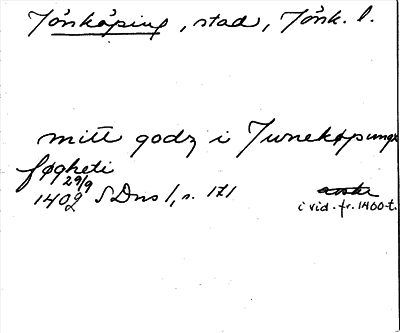 Jönköping, stad, Jönk. l.
mitt godz i Junekøpungx
føgheti
29/9
1402 SDns 1, s. 171
i vid. fr. 1400-t.